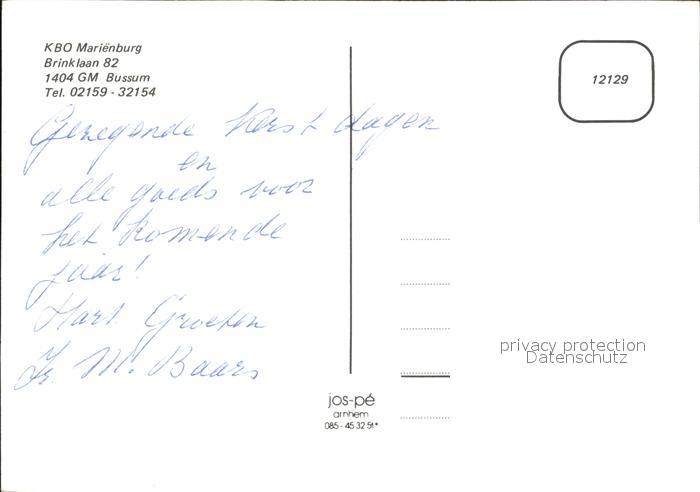 KBO Mariënburg
Brinklaan 82
1404 GM Bussum
Tel. 02159 - 32154
12129
Gezegende Kerst dagen
en
alle goeds voor
het komende
jaar!
Hart. Groeten
Zr. M. Baars
privacy protection
Datenschutz
jos-pé
arnhem
085 - 45 32 51*